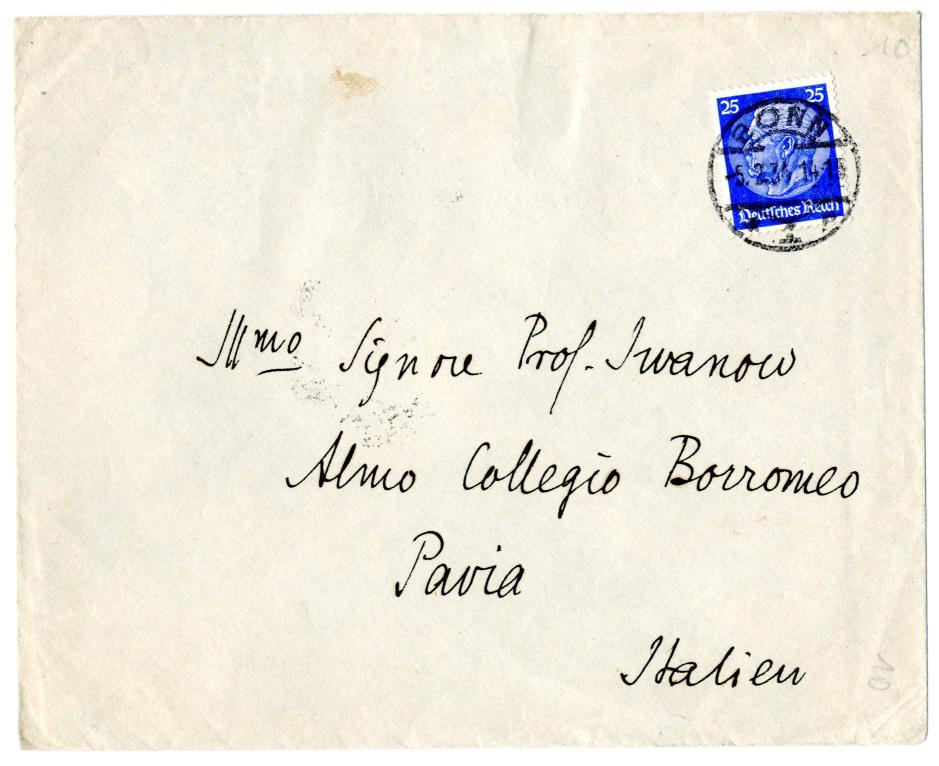 10
25 25
BONN
-5.2.34 14-15
Deutsches Reich
* 1
Illmo Signore Prof. Iwanow
Almo Collegio Borromeo
Pavia
Italien
10